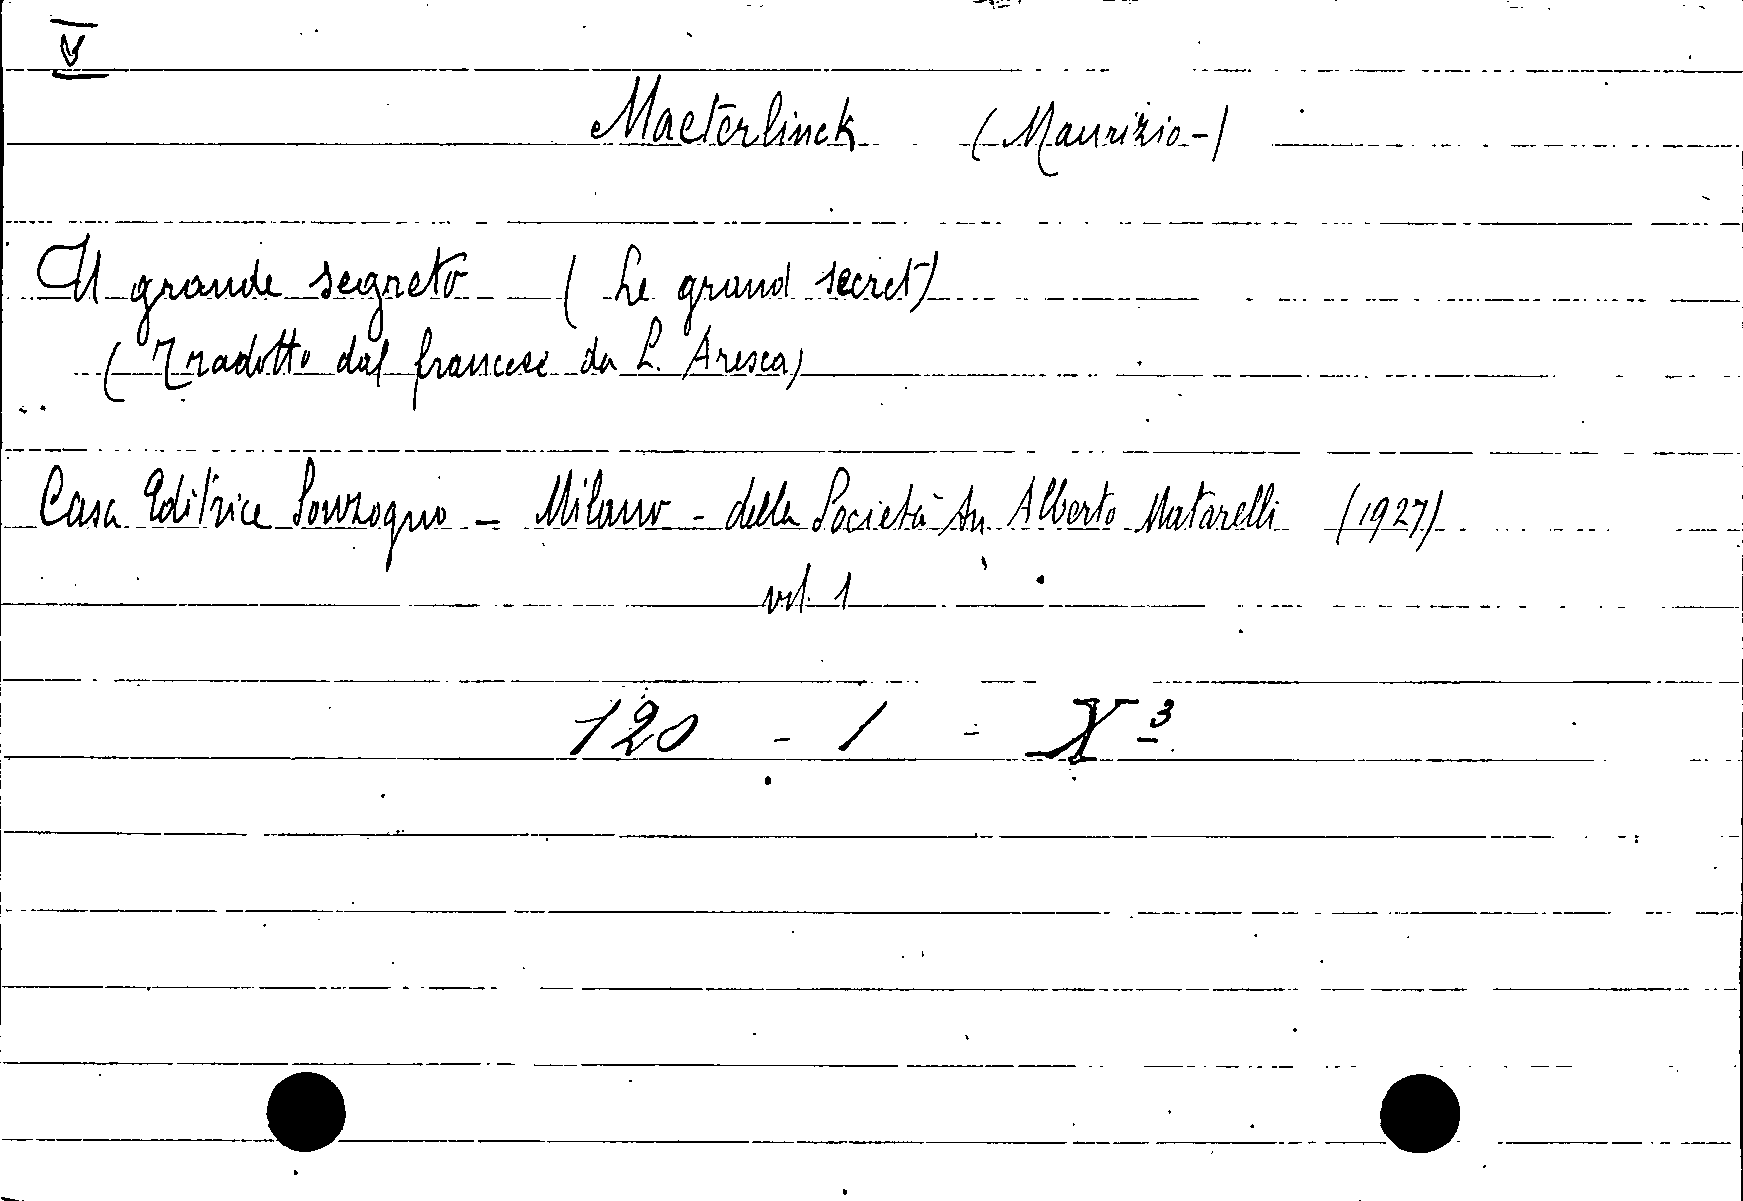 V
Maeterlinck (Maurizio-)
Il grande segreto (Le grand secret)
(Tradotto dal francese da L. Aresca)
Casa Editrice Sonzogno - Milano - della Società An. Alberto Matarelli (1927)
vol. 1
120 - 1 - X 3